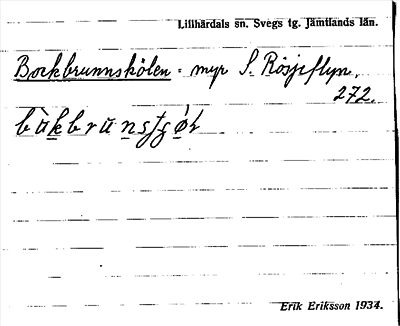 Lillhärdals sn. Svegs tg. Jämtlands län.
Bockbrunnskölen = myr S. Rösjeflyn,
272.
Erik Eriksson 1934.